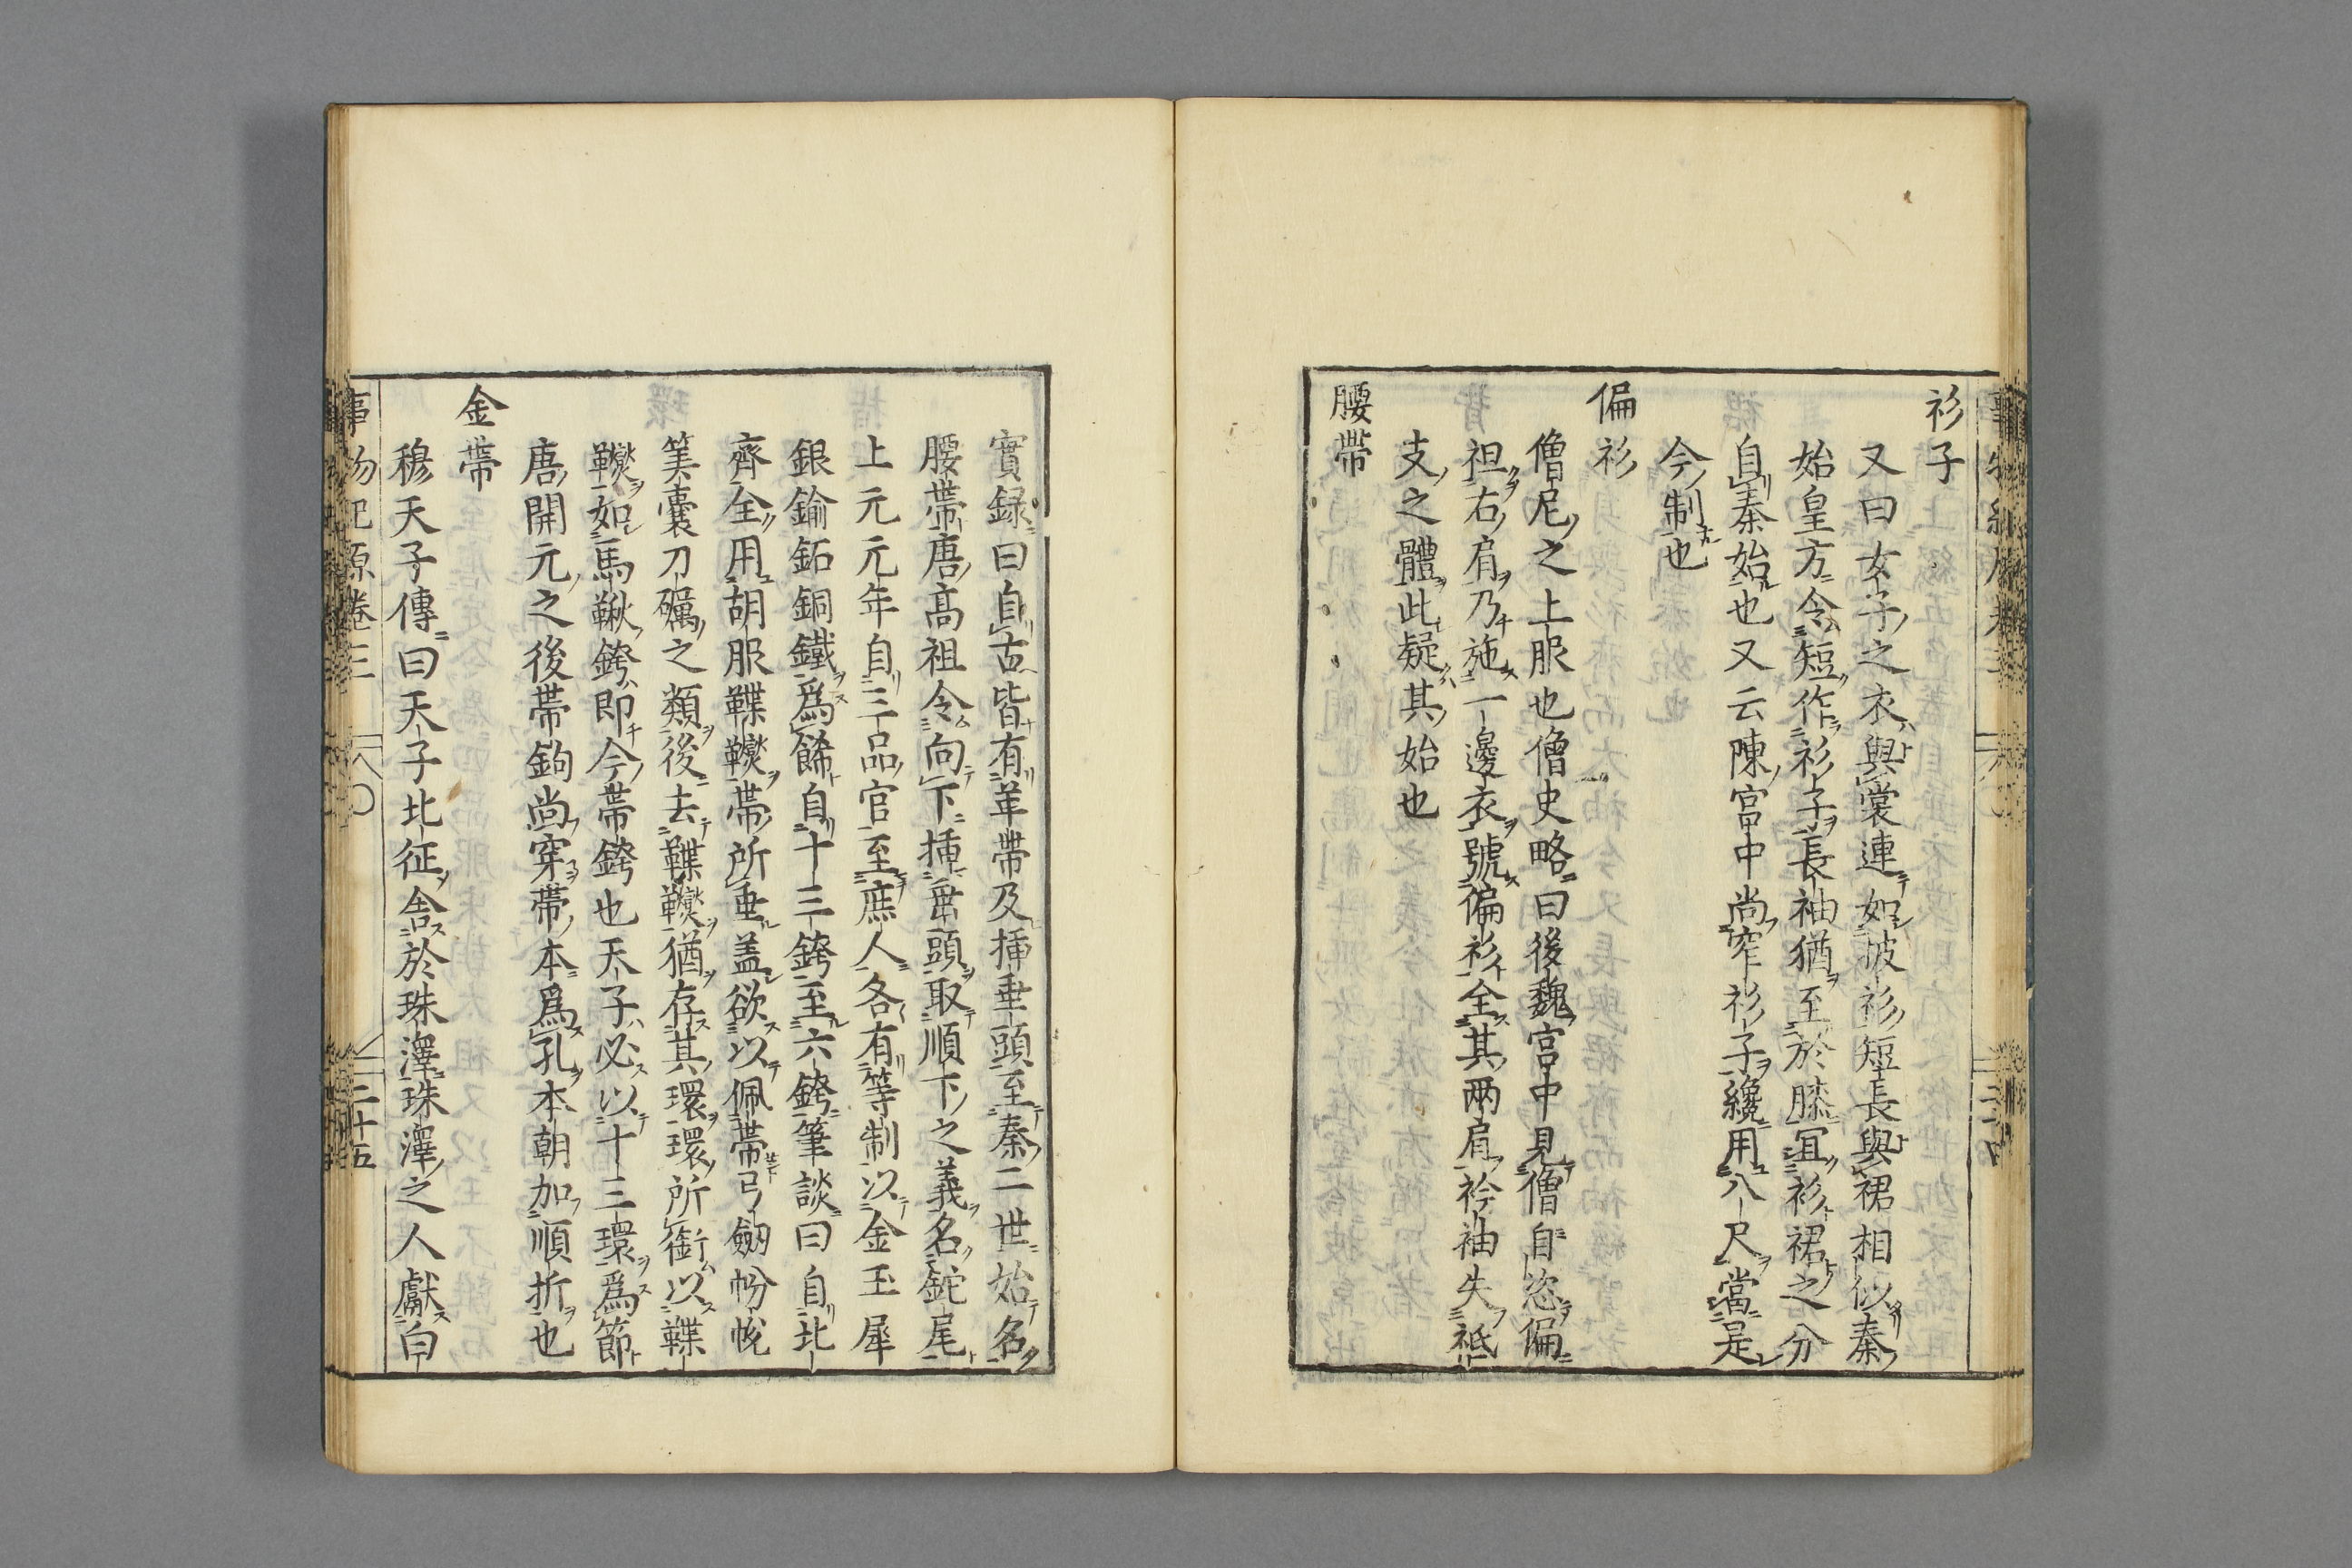 衫子
又曰女子之衣與裳連如披衫短長與裙相似秦
始皇方令短作衫子長袖猶至於膝冝衫裙之分
自秦始也又云陳宮中尚窄衫子纔用八尺當是
今制也
偏衫
僧尼之上服也僧史略曰後魏宮中見僧自恣偏
袒右肩乃施一邊衣號偏衫全其兩肩衿袖失祗
支之體此疑其始也
腰帶
實録曰自古皆有革帶及揷垂頭至秦二世始名
腰帶唐高祖令向下揷垂頭取順下之義名鉈尾
上元元年自三品官至庶人各有等制以金玉犀
銀鍮鉐銅鐵爲餙自十三銙至六銙筆談曰自北
齊全用胡服鞢𩎟帶所垂盖欲以佩帶弓劒帉帨
筭囊刀礪之類後去鞢𩎟猶存其環環所銜以鞢
𩎟如馬鞦銙即今帶銙也天子必以十三環爲節
唐開元之後帶鉤尚穿帶本爲孔本朝加順折也
金帶
穆天子傳曰天子北征舎於珠澤珠澤之人獻白
事物紀原卷三 八 二十五